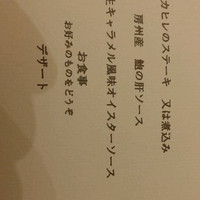 カヒレのステーキ　又は煮込み
房州産　鮑の肝ソース
生キャラメル風味オイスターソース
お食事
お好みのものをどうぞ
デザート